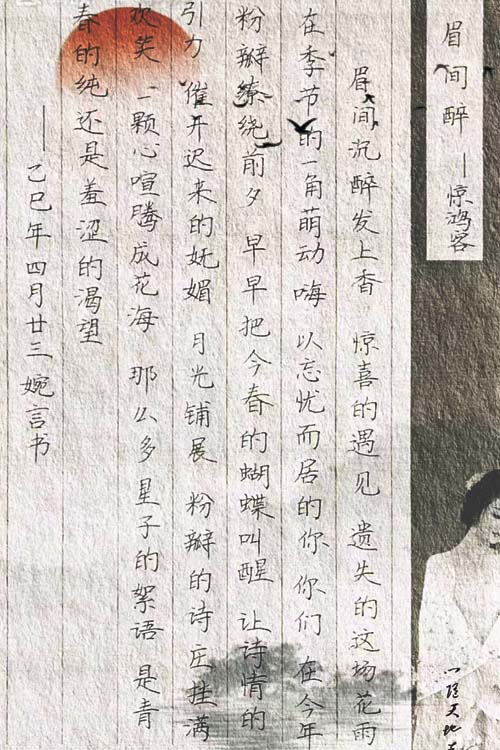 眉间醉
—惊鸿客
眉间沉醉发上香 惊喜的遇见 遗失的这场花雨
在季节的一角萌动 嗨 以忘忧而居的你 你们 在今年
粉瓣缭绕前夕 早早把今春的蝴蝶叫醒 让诗情的
引力 催开迟来的妩媚 月光铺展 粉瓣的诗 庄挂满
欢笑 一颗心喧腾成花海 那么多星子的絮语 是青
春的纯 还是羞涩的渴望
——乙巳年四月廿三 婉言书